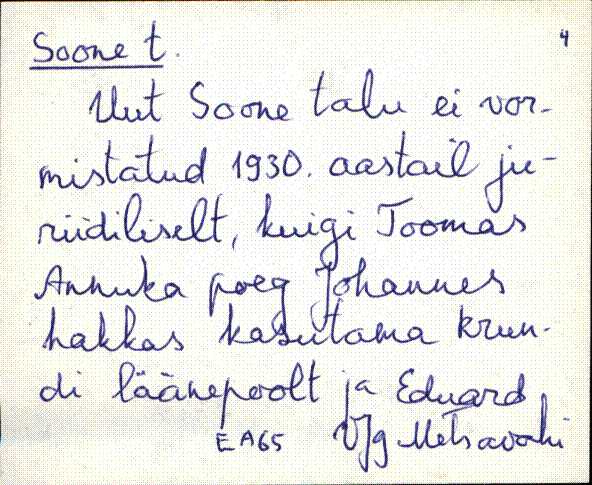 Soone t.
4
Uut Soone talu ei vor-
mistatud 1930. aastail ju-
riidiliselt, kuigi Toomas
Annuka poeg Johannes
hakkas kasutama krun-
di läänepoolt ja Eduard
EA65 Vjg Metsavahi